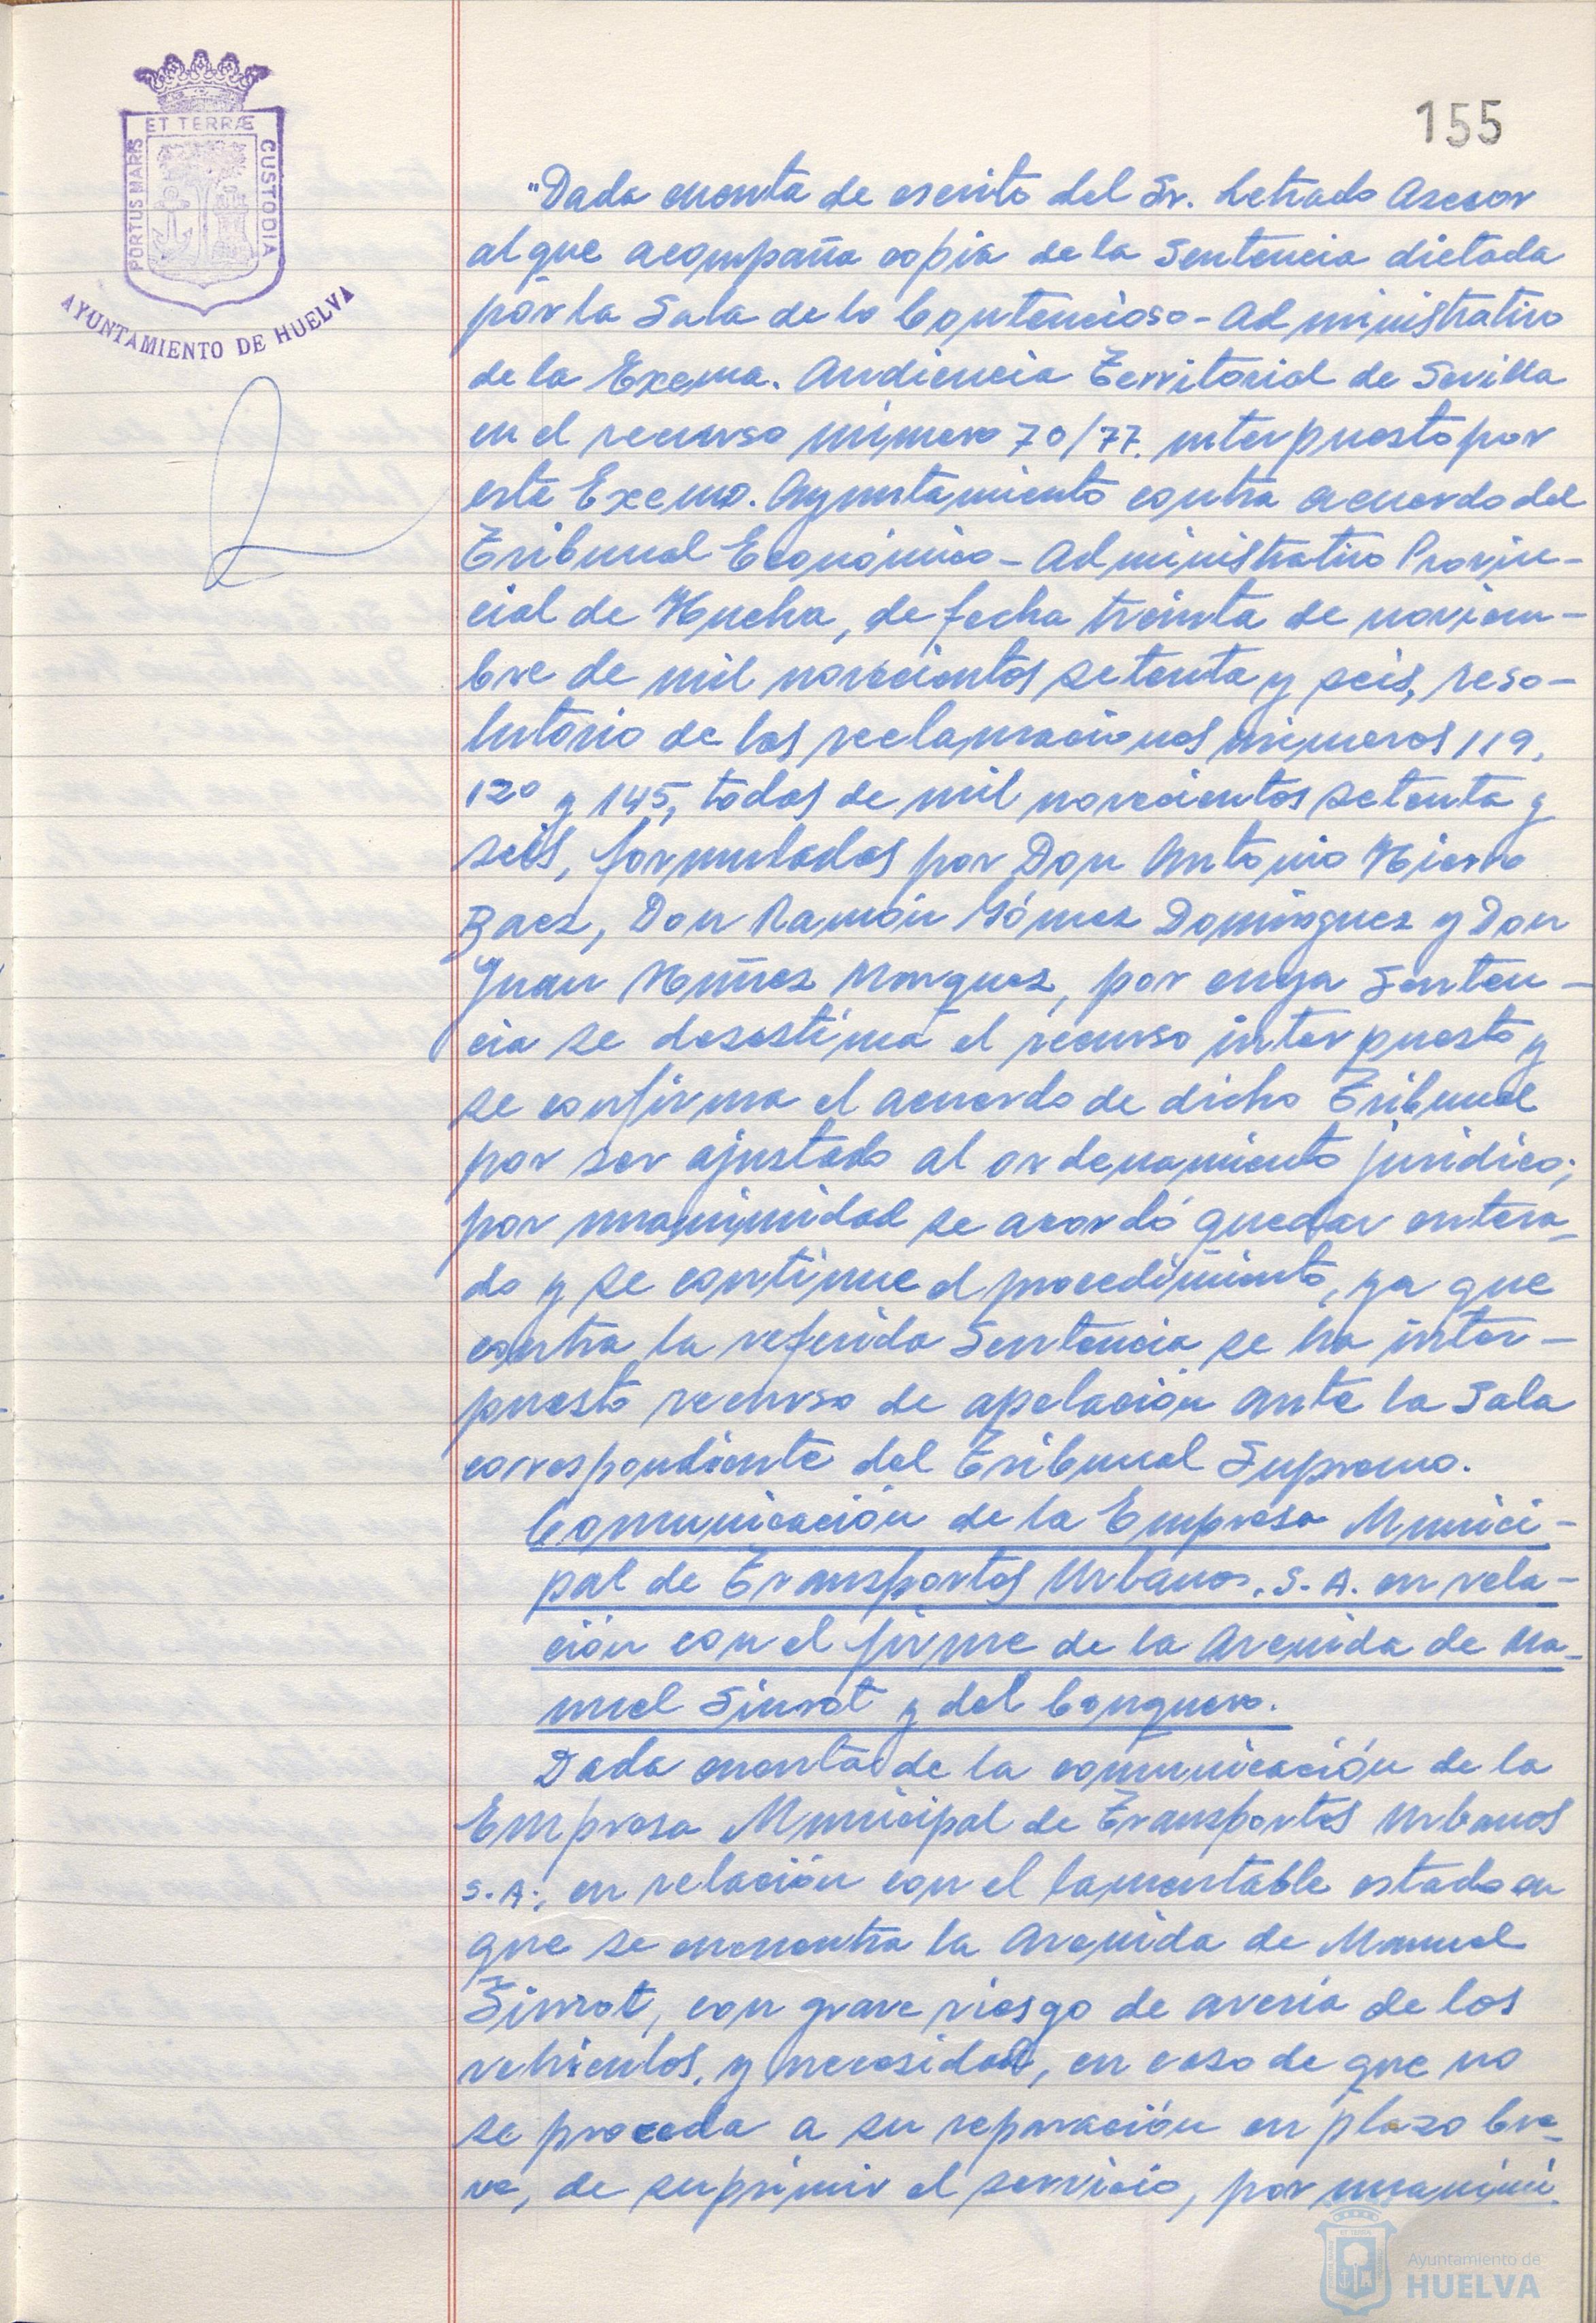 155
ET TERRÆ
PORTUS MARIS
CUSTODIA
AYUNTAMIENTO DE HUELVA
"Dada cuenta de escrito del Sr. Letrado Asesor
al que acompaña copia de la Sentencia dictada
por la Sala de lo Contencioso-Administrativo
de la Excma. Audiencia Territorial de Sevilla
en el recurso número 70/77. interpuesto por
este Excmo. Ayuntamiento contra acuerdo del
Tribunal Económico-Administrativo Provin-
cial de Huelva, de fecha treinta de noviem-
bre de mil novecientos setenta y seis, reso-
lutorio de las reclamaciones números 119,
120 y 145, todas de mil novecientos setenta y
seis, formuladas por Don Antonio Hierro
Baez, Don Ramón Gómez Domínguez y Don
Juan Núñez Marquez, por cuya Senten-
cia se desestima el recurso interpuesto y
se confirma el acuerdo de dicho Tribunal
por ser ajustado al ordenamiento jurídico;
por unanimidad se acordó quedar entera-
do y se continue el procedimiento, ya que
contra la referida Sentencia se ha inter-
puesto recurso de apelación ante la Sala
correspondiente del Tribunal Supremo.
Comunicación de la Empresa Munici-
pal de Transportes Urbanos, S.A. en rela-
ción con el firme de la Avenida de Ma-
nuel Siurot y del Conquero.
Dada cuenta de la comunicación de la
Empresa Municipal de Transportes Urbanos
S.A., en relación con el lamentable estado en
que se encuentra la Avenida de Manuel
Siurot, con grave riesgo de avería de los
vehículos, y necesidad, en caso de que no
se proceda a su reparación en plazo bre-
ve, de suprimir el servicio, por unanimi
Ayuntamiento de
HUELVA